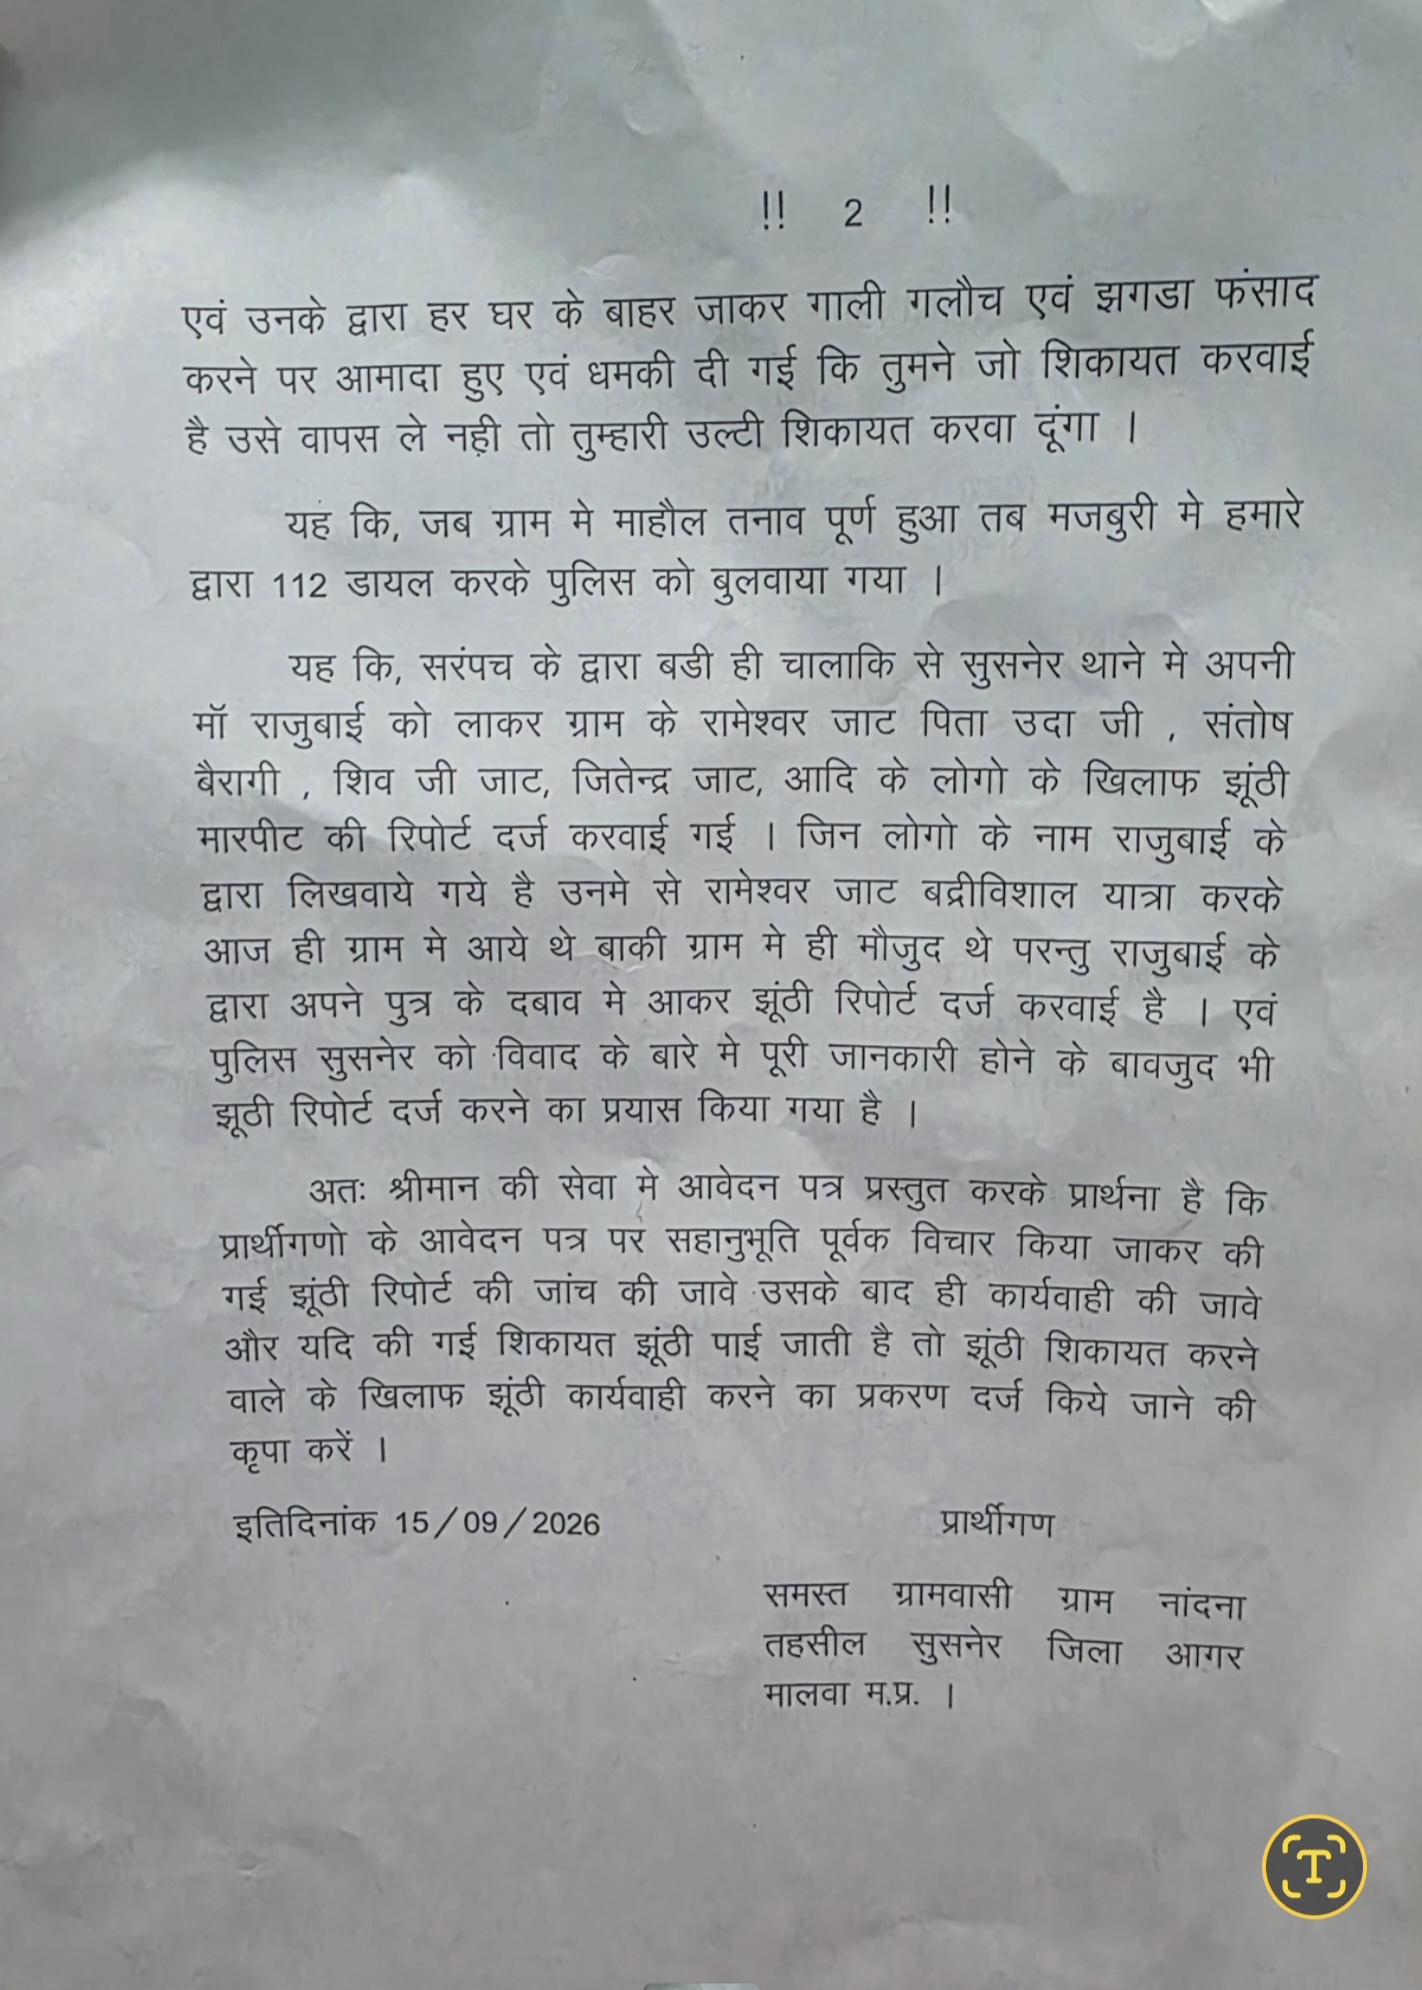 !! 2 !!
एवं उनके द्वारा हर घर के बाहर जाकर गाली गलौच एवं झगडा फंसाद
करने पर आमादा हुए एवं धमकी दी गई कि तुमने जो शिकायत करवाई
है उसे वापस ले नही तो तुम्हारी उल्टी शिकायत करवा दूंगा ।
यह कि, जब ग्राम मे माहौल तनाव पूर्ण हुआ तब मजबुरी मे हमारे
द्वारा 112 डायल करके पुलिस को बुलवाया गया ।
यह कि, सरंपच के द्वारा बडी ही चालाकि से सुसनेर थाने मे अपनी
मॉ राजुबाई को लाकर ग्राम के रामेश्वर जाट पिता उदा जी , संतोष
बैरागी , शिव जी जाट, जितेन्द्र जाट, आदि के लोगो के खिलाफ झूंठी
मारपीट की रिपोर्ट दर्ज करवाई गई । जिन लोगो के नाम राजुबाई के
द्वारा लिखवाये गये है उनमे से रामेश्वर जाट बद्रीविशाल यात्रा करके
आज ही ग्राम मे आये थे बाकी ग्राम मे ही मौजुद थे परन्तु राजुबाई के
द्वारा अपने पुत्र के दबाव मे आकर झूंठी रिपोर्ट दर्ज करवाई है । एवं
पुलिस सुसनेर को विवाद के बारे मे पूरी जानकारी होने के बावजुद भी
झूठी रिपोर्ट दर्ज करने का प्रयास किया गया है ।
अतः श्रीमान की सेवा मे आवेदन पत्र प्रस्तुत करके प्रार्थना है कि
प्रार्थीगणो के आवेदन पत्र पर सहानुभूति पूर्वक विचार किया जाकर की
गई झूंठी रिपोर्ट की जांच की जावे उसके बाद ही कार्यवाही की जावे
और यदि की गई शिकायत झूंठी पाई जाती है तो झूंठी शिकायत करने
वाले के खिलाफ झूंठी कार्यवाही करने का प्रकरण दर्ज किये जाने की
कृपा करें ।
इतिदिनांक 15/09/2026 प्रार्थीगण
समस्त ग्रामवासी ग्राम नांदना
तहसील सुसनेर जिला आगर
मालवा म.प्र. ।